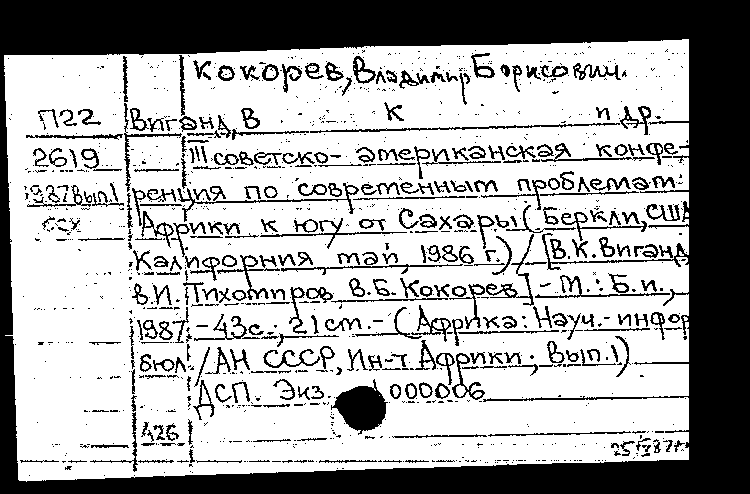 Кокорев, Владимир Борисович.
П22 Виганд, В К и др.
2619 III советско-американская конфе-
1987 Вып.1 ренция по современным проблемам
ССХ Африки к югу от Сахары (Беркли, США
Калифорния, май, 1986 г.) / [В.К. Виганд,
В.И. Тихомиров, В.Б. Кокорев] - М.: Б.и.,
1987 - 43с.; 21см. - (Африка: Науч.-инфор
бюл. / АН СССР, Ин-т Африки; Вып.1)
ДСП. Экз. 000006
426